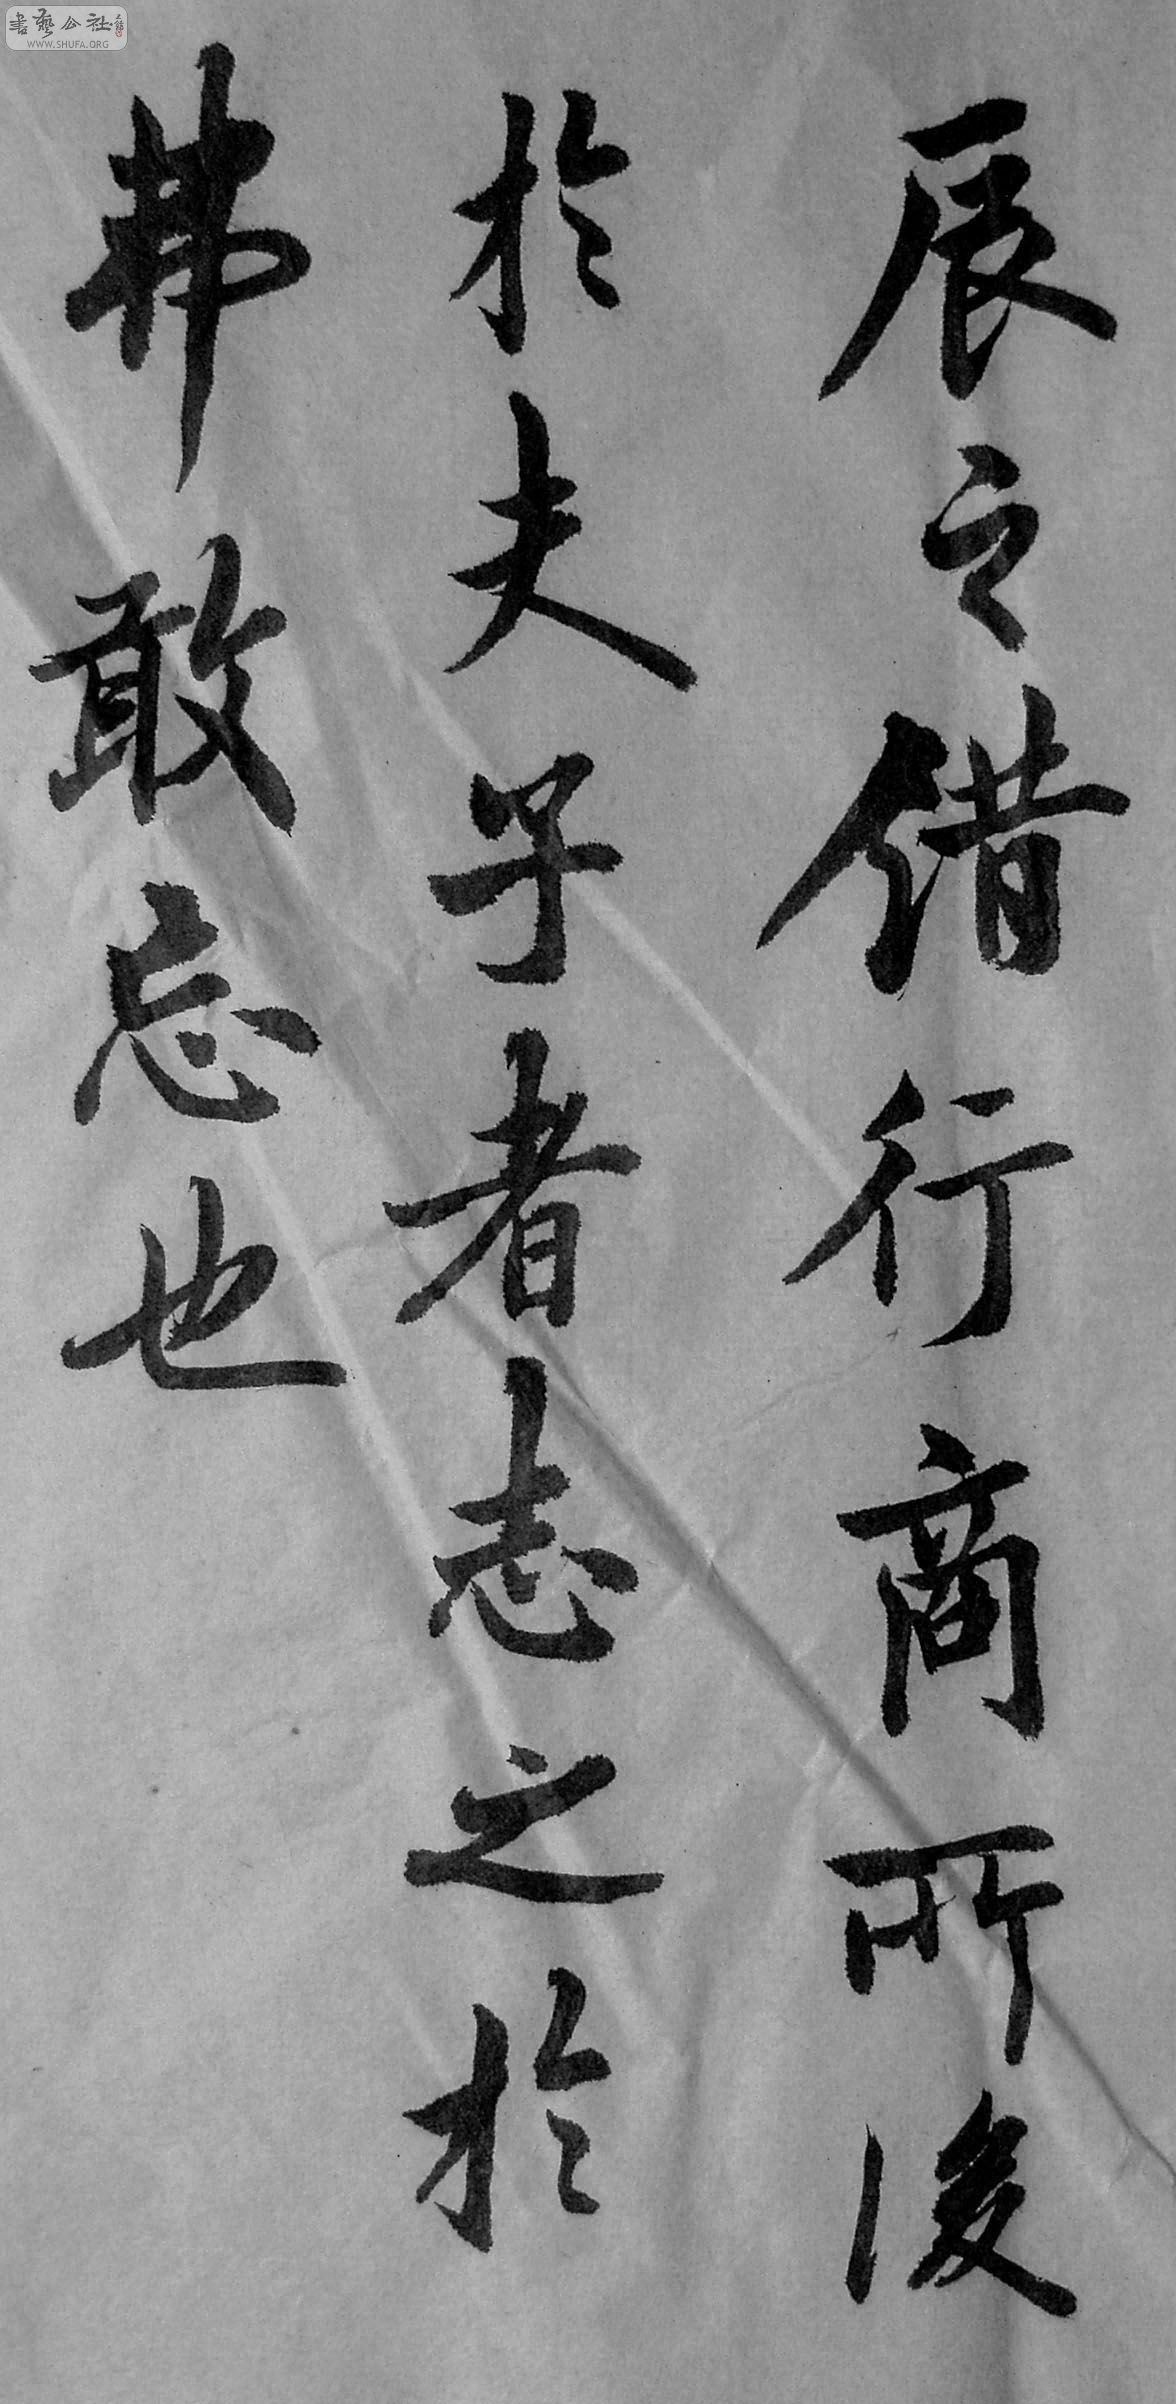 辰之错行商所後
於夫子者志之於
弗敢忘也
書藝公社
WWW.SHUFA.ORG